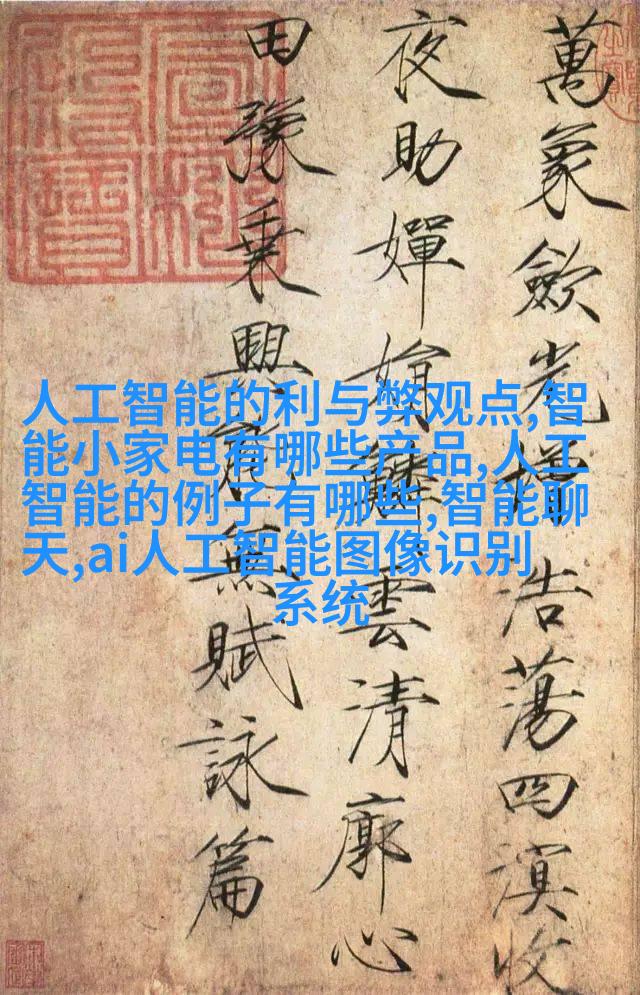 萬象歛光增浩蕩四溟收
夜助嬋娟鱗雲清廓心
田豫乘興能無賦詠篇
人工智能的利与弊观点,智
能小家电有哪些产品,人工
智能的例子有哪些,智能聊
天,ai人工智能图像识别
系统